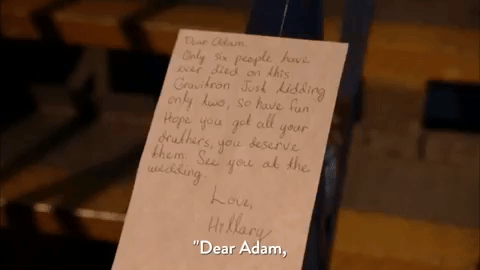 Dear Adam
Only six people have
ever died on this
Gravitron Just kidding
only two, so have fun
Hope you got all your
druthers, you deserve
them. See you at the
wedding.
Love,
Hillary
"Dear Adam,